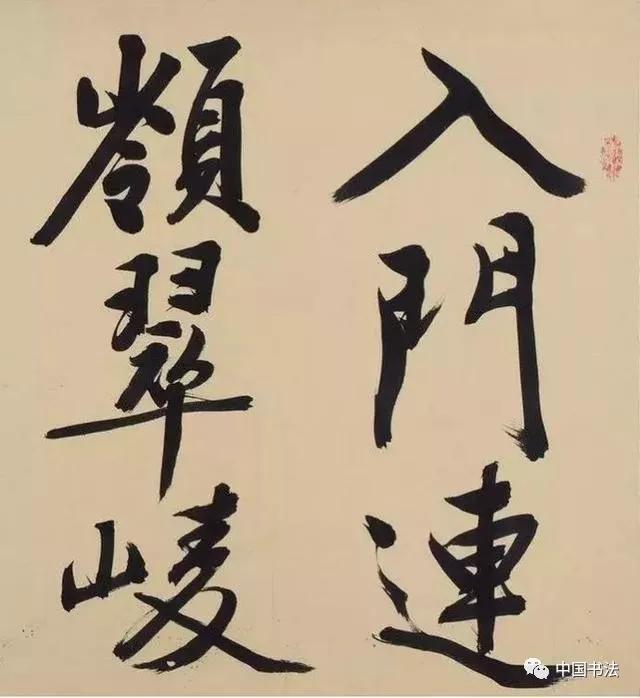 入門連
嶺翠崚
中国书法